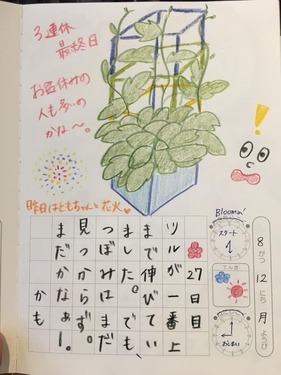 3連休
最終日
お盆休みの
人も多いの
かな〜。
昨日はともちゃんと花火
27日目
ツルが一番上
まで伸びてい
ました。でも、
つぼみはまだ
見つからず。
まだかなぁー。
かも
Bloomin'
スタート
てんき
おしまい
8
がつ
12
にち
月
ようび